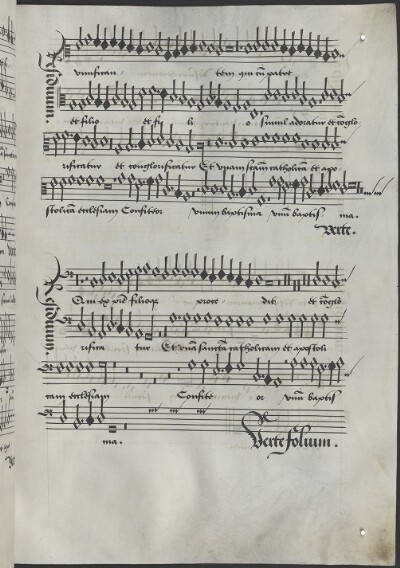 vivifican tem qui cū patre
et filio et fi li o simul adoratur et cōglo
rificatur et conglorificatur Et vnam sctām catholicā et apo
stolicā ecclesiam Confiteor vnum baptisma vnū baptis ma.
Verte.
Qui ex prē filioqȝ proce dit et cōglo
rifica tur Et vnā sanctā catholicam et apostoli
cam ecclesiam Confite or vnū baptis
ma. Verte folium.